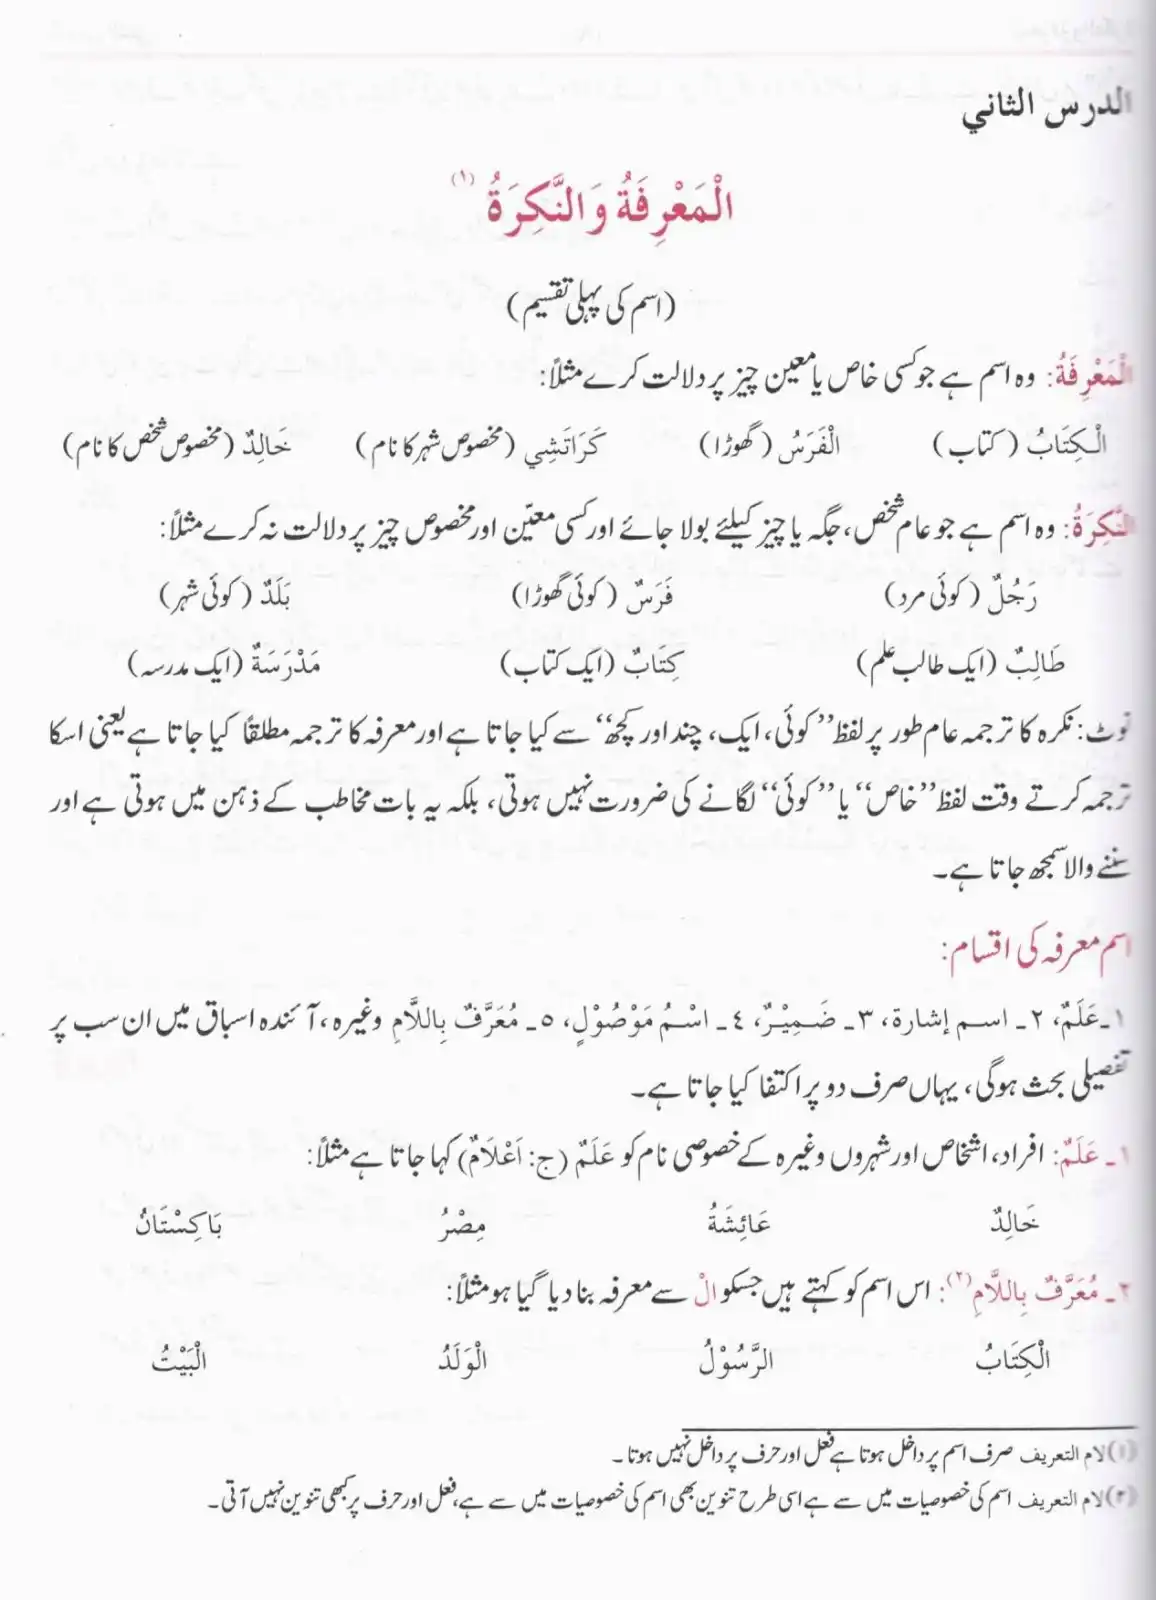 الدرس الثاني
الْمَعْرِفَةُ وَالنَّكِرَةُ (١)
(اسم کی پہلی تقسیم)
الْمَعْرِفَةُ: وہ اسم ہے جو کسی خاص یا معین چیز پر دلالت کرے مثلاً:
الْكِتَابُ (کتاب) الْفَرَسُ (گھوڑا) كَرَاتَشِي (مخصوص شہر کا نام) خَالِدٌ (مخصوص شخص کا نام)
النَّكِرَةُ: وہ اسم ہے جو عام شخص، جگہ یا چیز کیلئے بولا جائے اور کسی معیّن اور مخصوص چیز پر دلالت نہ کرے مثلاً:
رَجُلٌ (کوئی مرد) فَرَسٌ (کوئی گھوڑا) بَلَدٌ (کوئی شہر)
طَالِبٌ (ایک طالب علم) كِتَابٌ (ایک کتاب) مَدْرَسَةٌ (ایک مدرسہ)
نوٹ: نکرہ کا ترجمہ عام طور پر لفظ ”کوئی، ایک، چند اور کچھ“ سے کیا جاتا ہے اور معرفہ کا ترجمہ مطلقًا کیا جاتا ہے یعنی اسکا
ترجمہ کرتے وقت لفظ ”خاص“ یا ”کوئی“ لگانے کی ضرورت نہیں ہوتی، بلکہ یہ بات مخاطب کے ذہن میں ہوتی ہے اور
سننے والا سمجھ جاتا ہے۔
اسم معرفہ کی اقسام:
١ـ عَلَمٌ، ٢ـ اسم إشارة، ٣ـ ضَمِيْرٌ، ٤ـ اسْمُ مَوْصُوْلٍ، ٥ـ مُعَرَّفٌ بِاللَّامِ وغیرہ، آئندہ اسباق میں ان سب پر
تفصیلی بحث ہوگی، یہاں صرف دو پر اکتفا کیا جاتا ہے۔
١ـ عَلَمٌ: افراد، اشخاص اور شہروں وغیرہ کے خصوصی نام کو عَلَمٌ (ج: اَعْلَامٌ) کہا جاتا ہے مثلاً:
خَالِدٌ عَائِشَةُ مِصْرُ بَاكِسْتَانُ
٢ـ مُعَرَّفٌ بِاللَّامِ(٢): اس اسم کو کہتے ہیں جسکو الْ سے معرفہ بنا دیا گیا ہو مثلاً:
الْكِتَابُ الرَّسُوْلُ الْوَلَدُ الْبَيْتُ
(١) لام التعريف صرف اسم پر داخل ہوتا ہے فعل اور حرف پر داخل نہیں ہوتا۔
(٢) لام التعريف اسم کی خصوصیات میں سے ہے اسی طرح تنوین بھی اسم کی خصوصیات میں سے ہے، فعل اور حرف پر کبھی تنوین نہیں آتی۔